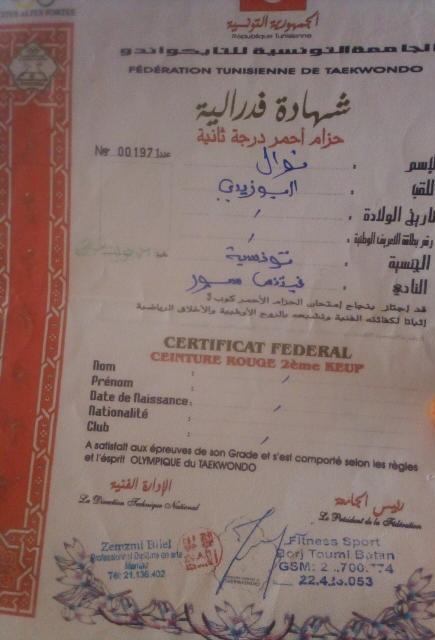 CITIUS ALTIUS FORTIUS
الجمهورية التونسية
République Tunisienne
الجامعة التونسية للتايكواندو
FÉDÉRATION TUNISIENNE DE TAEKWONDO
شهادة فدرالية
حزام أحمر درجة ثانية
No 001971 عدد
الإسم : نوال
اللقب : البوزيدي
تاريخ الولادة : /
رقم بطاقة التعريف الوطنية : /
الجنسية : تونسية
النادي : فيتنس سبور
قد إجتاز بنجاح إمتحان الحزام الأحمر كوب
إثباتا لكفائته الفنية وتشبعه بالروح الأولمبية والأخلاق الرياضية
CERTIFICAT FEDERAL
CEINTURE ROUGE 2ème KEUP
Nom :
Prénom : /
Date de Naissance :
Nationalité :
Club : /
A satisfait aux épreuves de son Grade et s'est comporté selon les règles
et l'ésprit OLYMPIQUE du TAEKWONDO
الإدارة الفنية
La Direction Technique National
رئيس الجامعة
Le Président de la Fédération
Zemzmi Bilel
Professionnel Diplômé en arts
Martiaux
Tél: 21.136.402
Fitness Sport
Borj Toumi Batan
GSM: